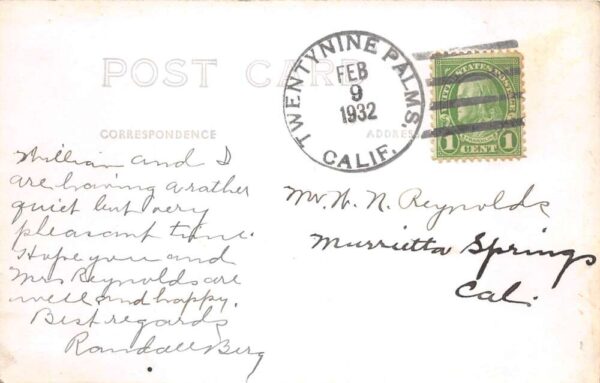 POST CARD
TWENTYNINE PALMS,
CALIF.
FEB
9
1932
UNITED STATES POSTAGE
1 CENT 1
CORRESPONDENCE
ADDRESS
William and I
are having a rather
quiet but very
pleasant time.
Hope you and
Mrs Reynolds are
well and happy.
Best regards
Randall Berg
Mr. N. Reynolds
Murrietta Springs
Cal.